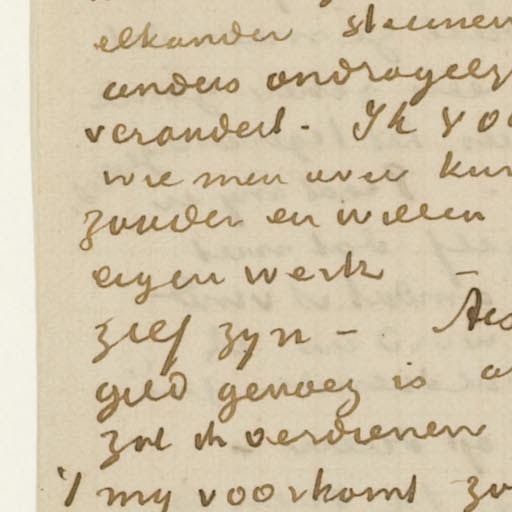 elkander steunen
anders ondragelij
verandert. Ik voo
wie men over kun
zonder en willen
eigen werk –
zelf zyn – Als
geld genoeg is
zal ik verdienen
't my voorkomt zo